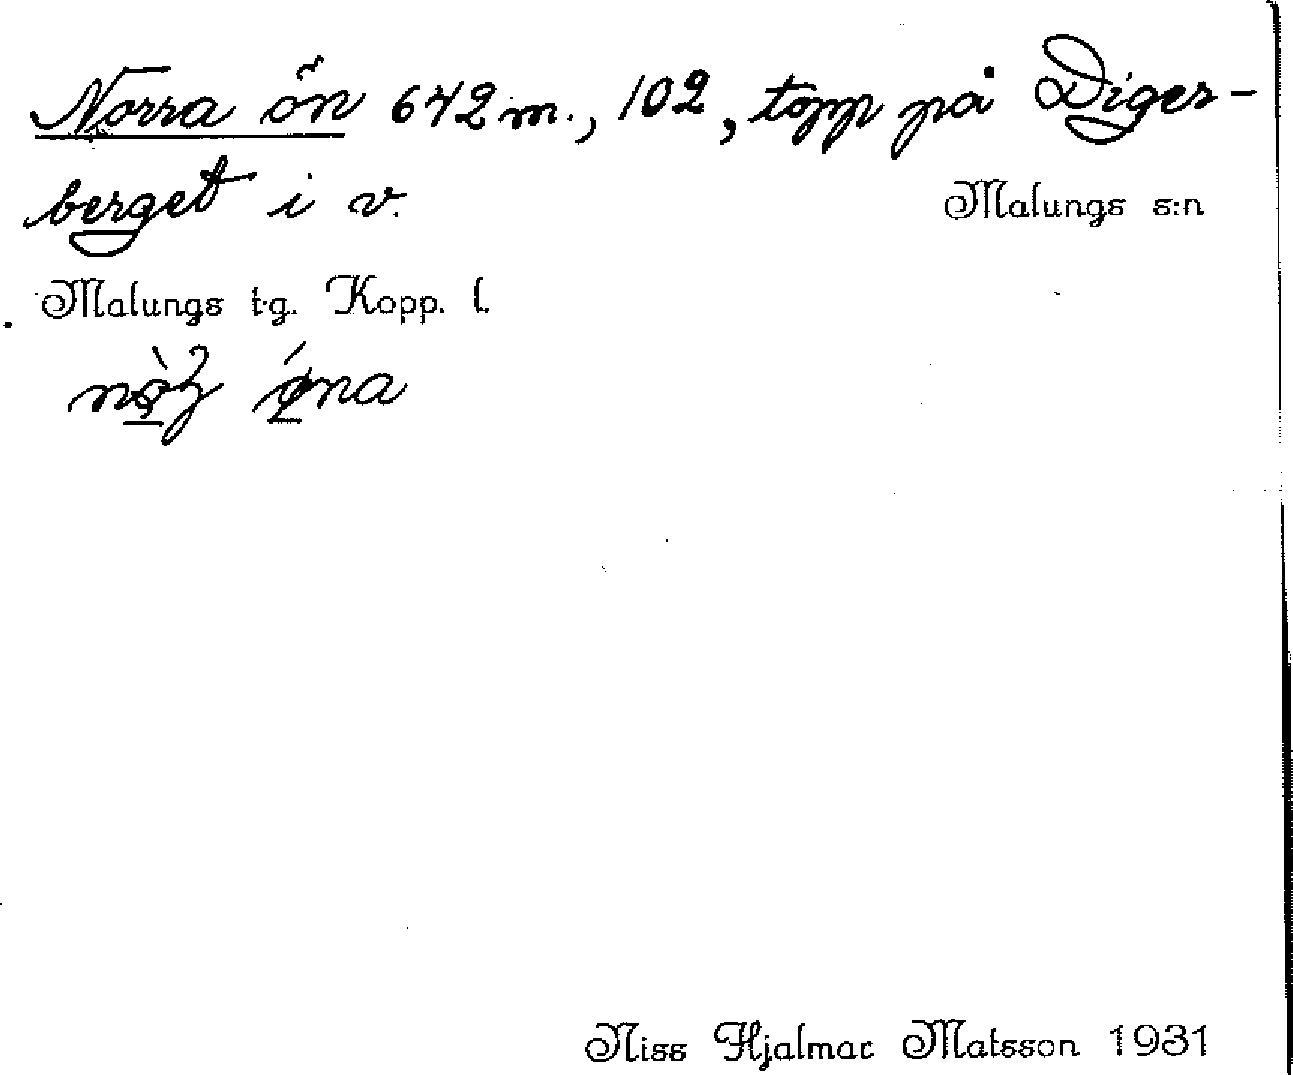 Norra ön 642 m., 102, topp på Diger-
berget i v.
Malungs s:n
Malungs t.g. Kopp. l.
Niss Hjalmar Matsson 1931